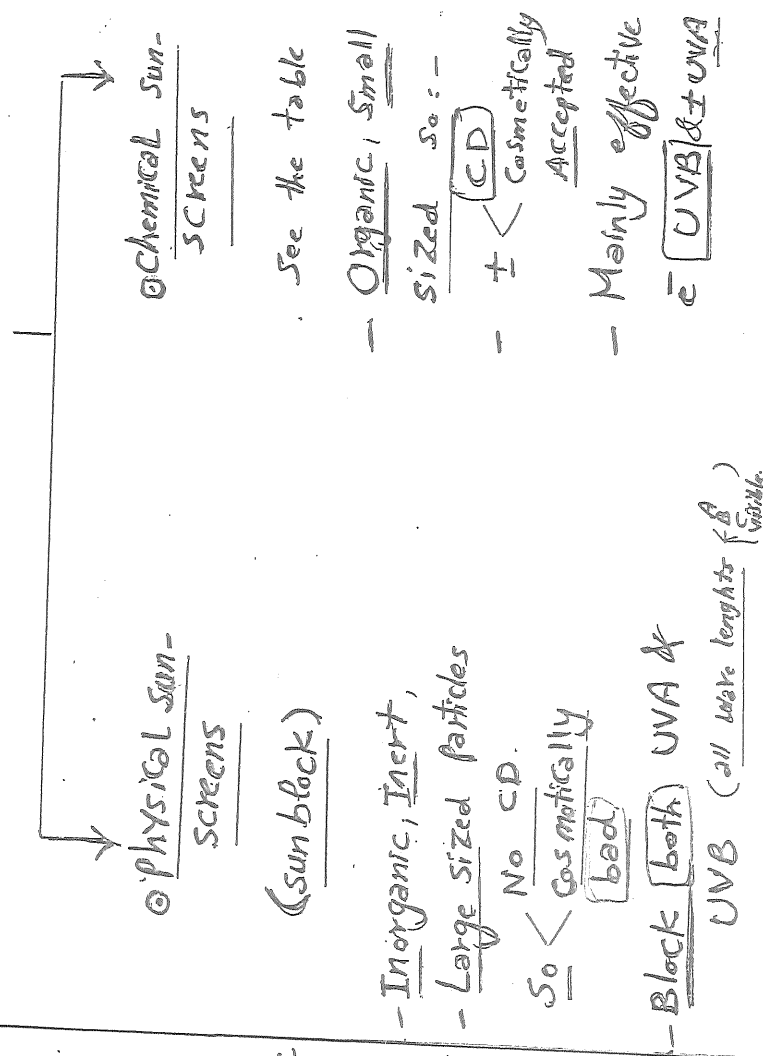 ⊙ Physical sun-
screens
(sunblock)
- Inorganic, Inert,
- Large sized particles
So < No CD.
Cosmotically
bad
- Block both UVA &
UVB (all wave lenghts { A
B
C
visible. )
⊙ Chemical sun-
screens
. See the table
- Organic, Small
sized so:-
- ± < CD
Cosmetically
Accepted
- Mainly effective
ē UVB & ± UVA